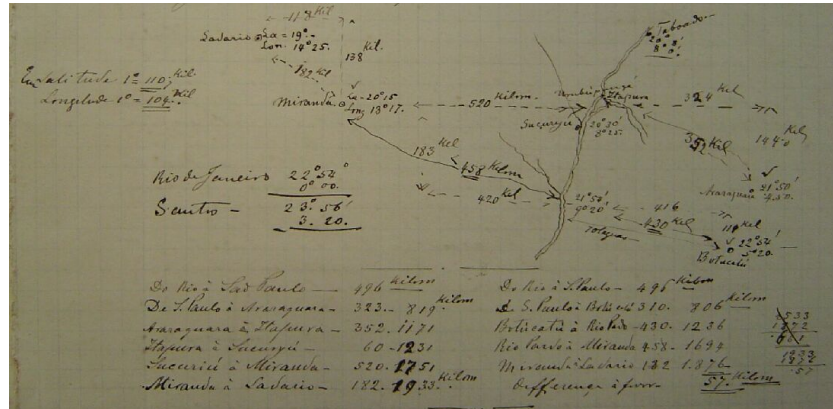 118 Kil
Ladario La = 19°-
Lon. 14°25.
138
Kil.
182 Kil
Em Latitude 1° = 110 Kil
Longitude 1° = 104 Kil
Miranda La - 20°15
Lon 13°17.
520 Kilom
Taboado
20°
8°
Itapura
Sucuryu
20°30'
8°25.
324 Kil
352 Kil
144 Kil
Araraquara 21°50'
183 Kil
458 Kilom
420 Kil
21°50'
9°20'
416
430 Kil
114 Kil
22°54'
5°20.
Botucatú
Rio de Janeiro 22°54'
0°00.
Santos - 23°56'
3.20.
Do Rio à Sao Paulo - 496 Kilom
De S. Paulo à Araraquara - 323. - 819 Kilom
Araraquara à Itapura - 352. 1171
Itapura à Sucuryú - 60 - 1231
Sucuriú à Miranda - 520. 1751
Miranda à Ladario - 182. 1933 Kilom
Do Rio à S. Paulo - 496 Kilom
S. Paulo à Botucatú 310. 806 Kilom
Botucatú à Rio Pardo - 430. 1236
Rio Pardo à Miranda 458. 1694
Miranda à Ladario 182 1.876
Differença à favor - 57. Kilom
1933
57